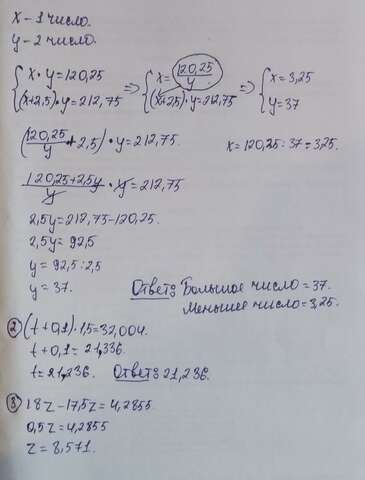 x – 1 число.
y – 2 число.
{x·y=120,25 => {x=120,25/y => {x=3,25
{(x+2,5)·y=212,75 {(x+2,5)·y=212,75 {y=37
(120,25/y + 2,5)·y=212,75. x=120,25:37=3,25.
(120,25+2,5y)/y · y = 212,75
2,5y=212,75-120,25.
2,5y=92,5
y=92,5:2,5
y=37.
Ответ: Большое число=37.
Меньшее число=3,25.
② (t+0,1)·1,5=32,004.
t+0,1=21,336.
t=21,236. Ответ: 21,236.
③ 18z-17,5z=4,2855
0,5z=4,2855
z=8,571.